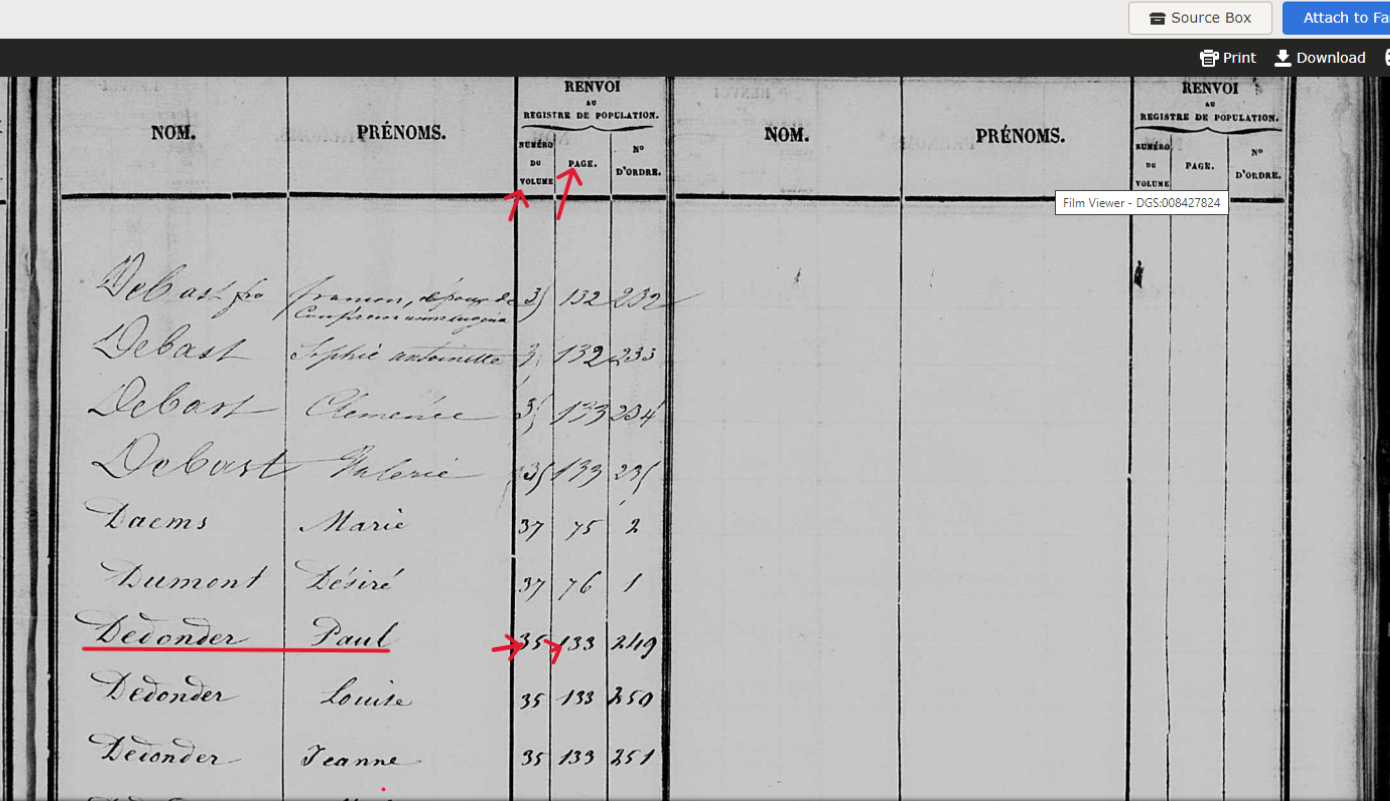 Source Box
Attach to Fa
Print
Download
NOM.
PRÉNOMS.
RENVOI
AU
REGISTRE DE POPULATION.
NUMÉRO
DU
VOLUME
PAGE.
N°
D'ORDRE.
NOM.
PRÉNOMS.
RENVOI
AU
REGISTRE DE POPULATION.
NUMÉRO
DU
VOLUME
PAGE.
N°
D'ORDRE.
Film Viewer - DGS:008427824
Debast 35 132 232
Debast Sophie antoinette 35 132 233
Debast Clemence 35 133 234
Debast Valerie 35 133 235
Daems Marie 37 75 2
Dumont Désiré 37 76 1
Dedonder Paul 35 133 249
Dedonder Louise 35 133 250
Dedonder Jeanne 35 133 251